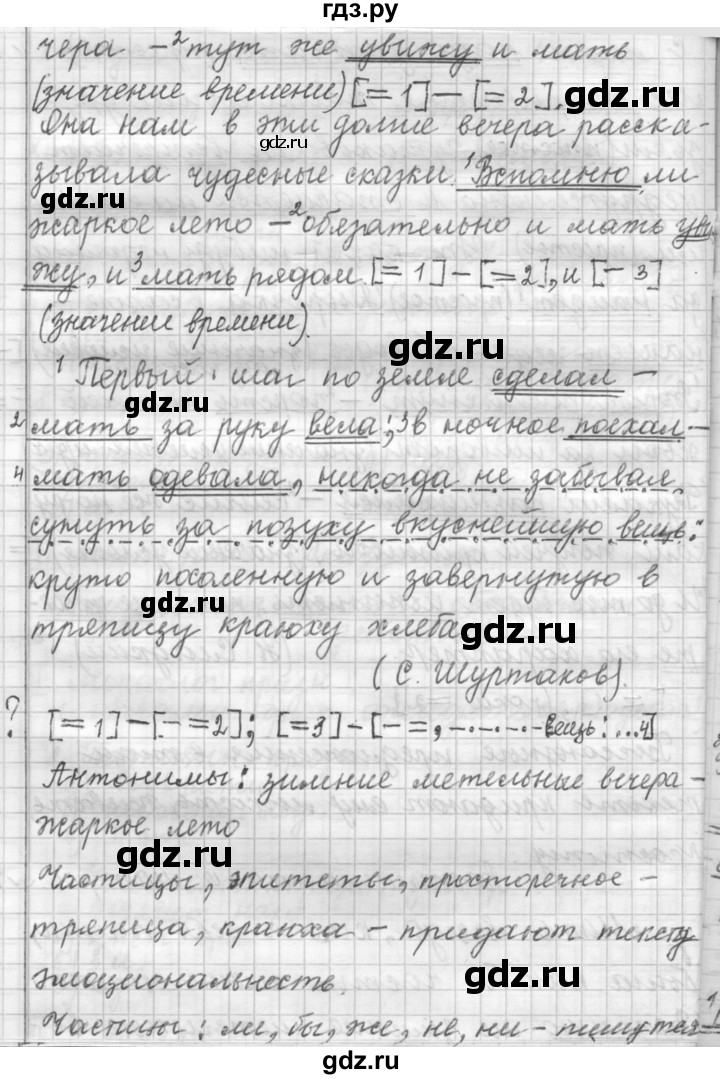 гдз.ру
чера – ²тут же увижу и мать
(значение времени) [= 1] – [= 2].
Она нам в эти долгие вечера расска-
зывала чудесные сказки. ¹Вспомню ли
жаркое лето – ²обязательно и мать уви-
жу, и ³мать рядом. [= 1] – [= 2], и [– 3]
(значении времени).
¹ Первый шаг по земле сделал –
² мать за руку вела; ³в ночное поехал –
⁴ мать одевала, никогда не забывал
сунуть за пазуху вкуснейшую вещь:
круто посоленную и завернутую в
тряпицу краюху хлеба
(С. Шуртаков).
? [= 1] – [– = 2]; [= 3] – [– =, –·–·–·– вещь: ...4]
Антонимы: зимние метельные вечера –
жаркое лето
Частицы, эпитеты, просторечное –
тряпица, краюха – придают тексту
эмоциональность.
Частицы: ли, бы, же, не, ни – пишутся
gdz.ru
gdz.ru
gdz.ru
gdz.ru
gdz.ru
gdz.ru
gdz.ru
gdz.ru
gdz.ru
gdz.ru
gdz.ru
gdz.ru